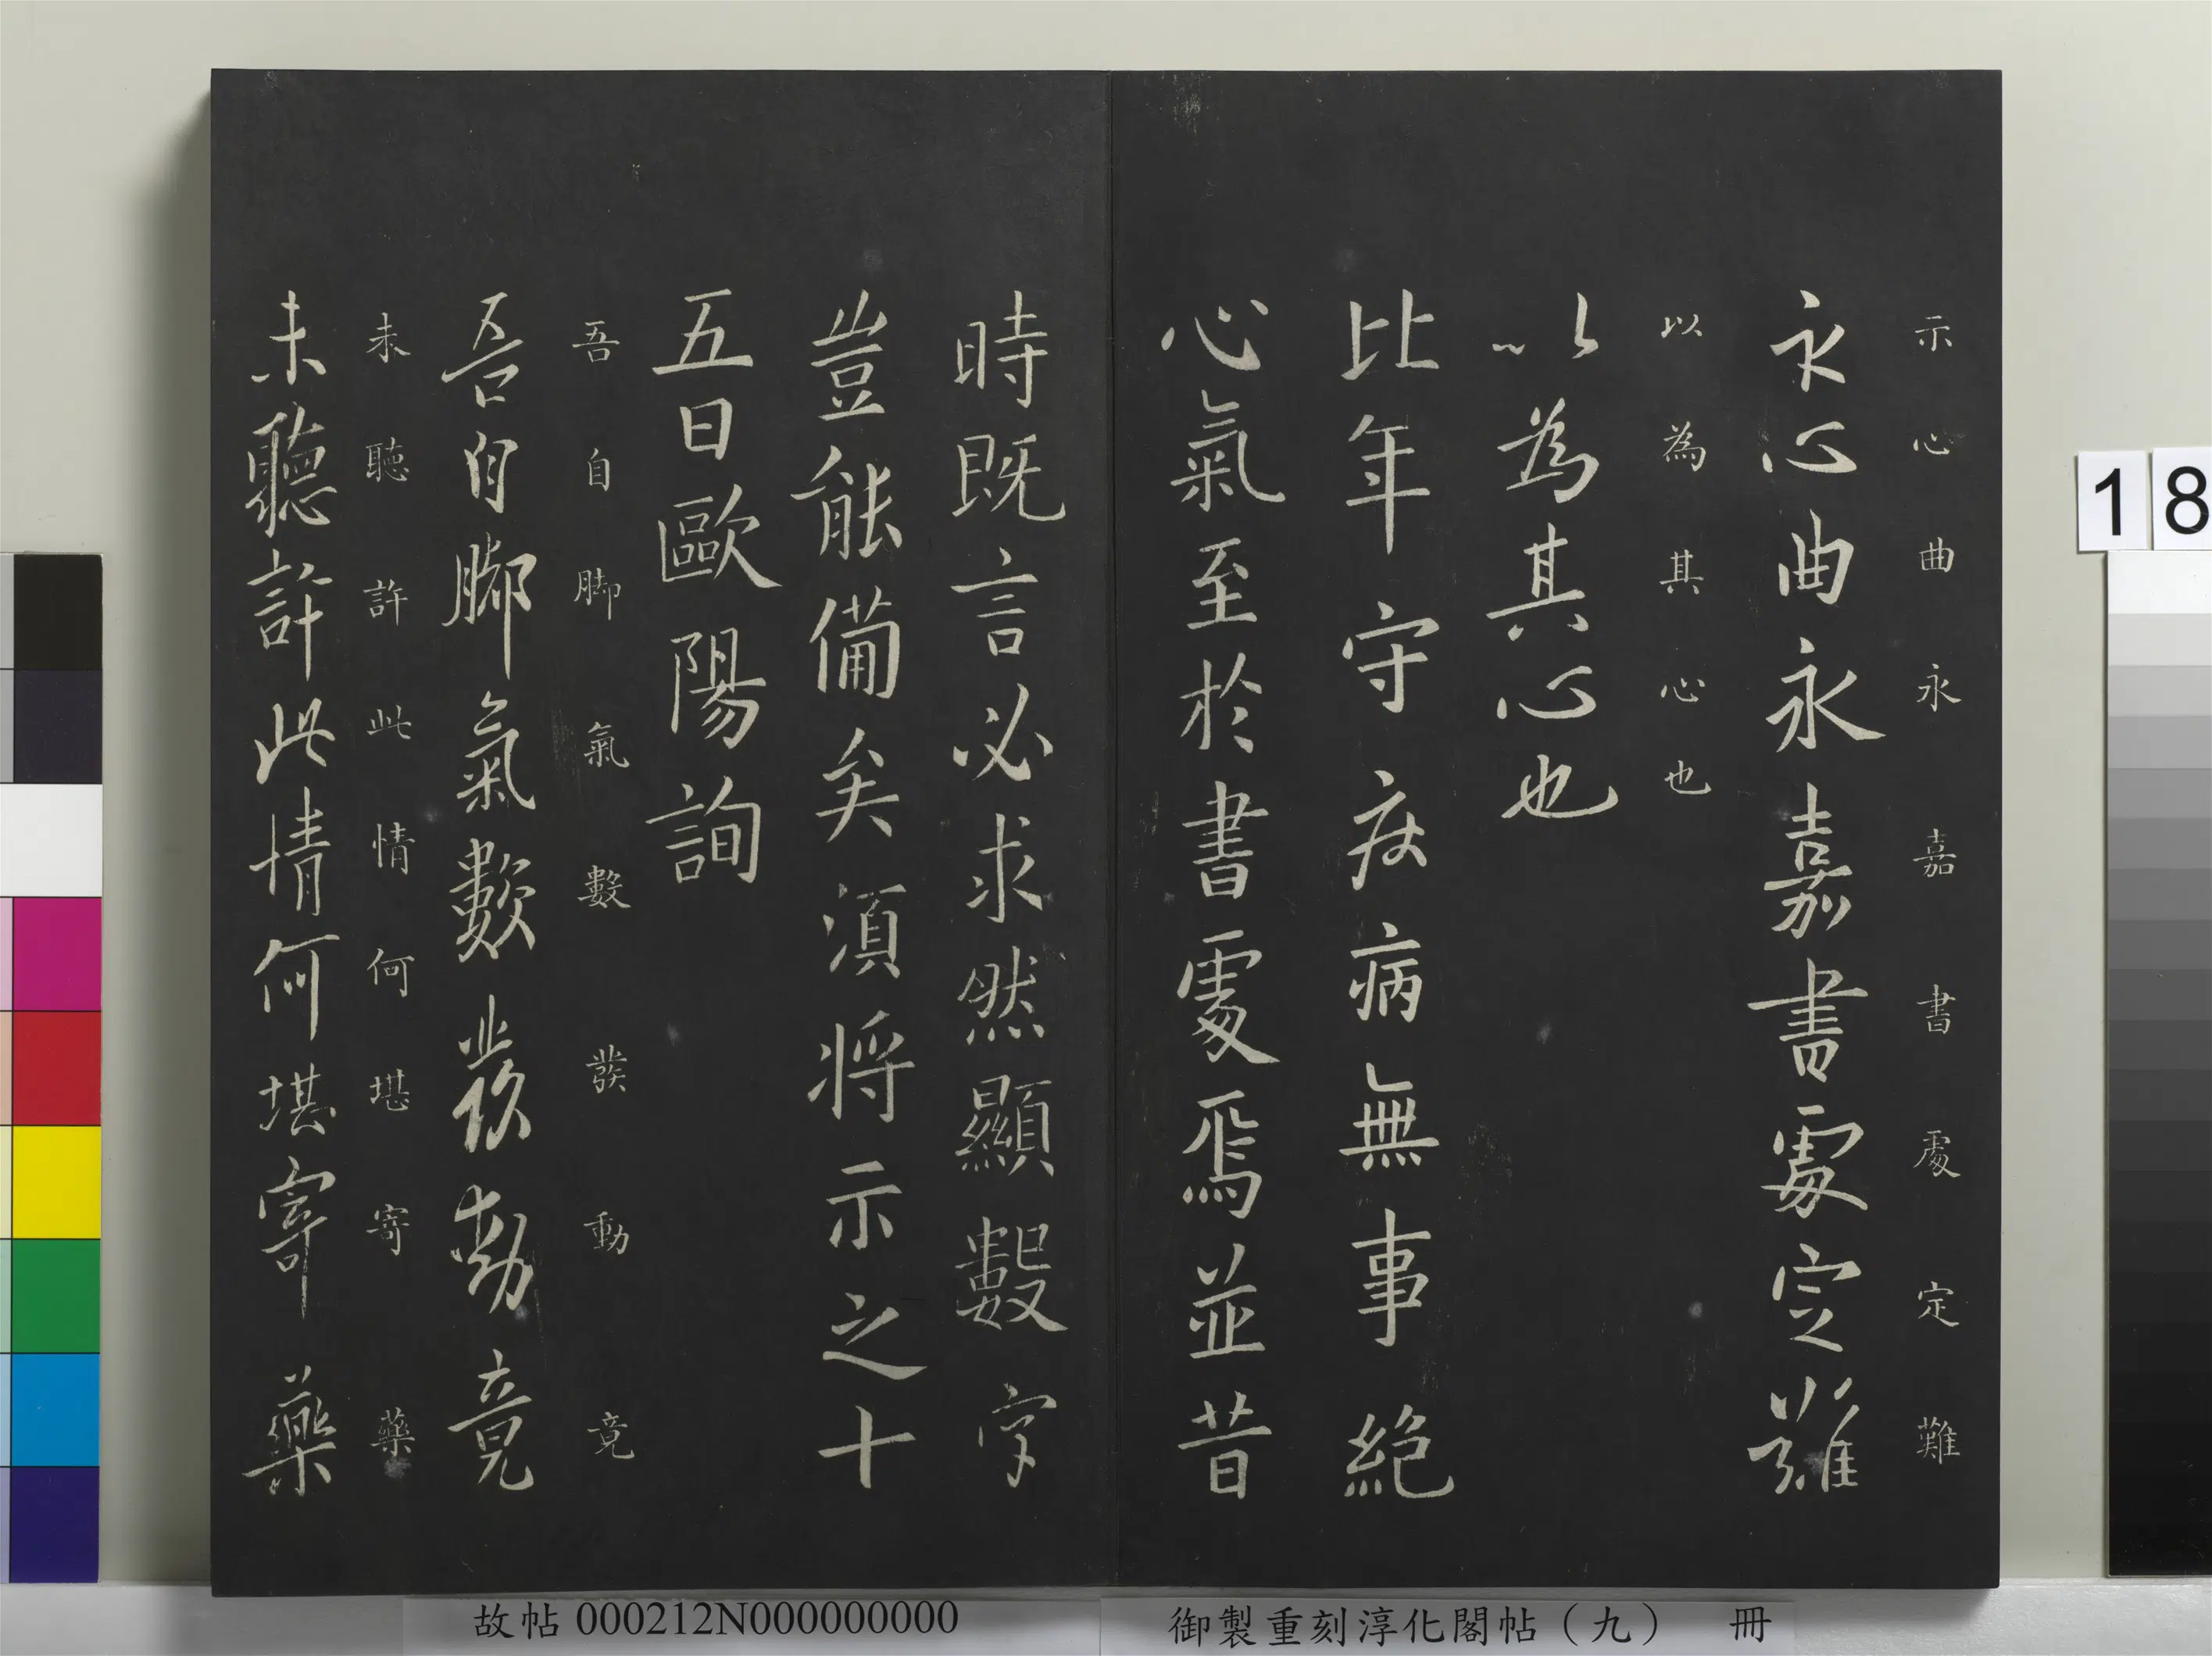 示心曲永嘉書處定難
示心曲永嘉書處定難
以為其心也
以為其心也
比年守疾病無事絕
心氣至於書處焉並昔
時既言必求然顯數字
豈能備矣須將示之十
五日歐陽詢
吾自脚氣數發動竟
吾自脚氣數發動竟
未聽許此情何堪寄藥
未聽許此情何堪寄藥
18
故帖000212N000000000
御製重刻淳化閣帖（九） 冊